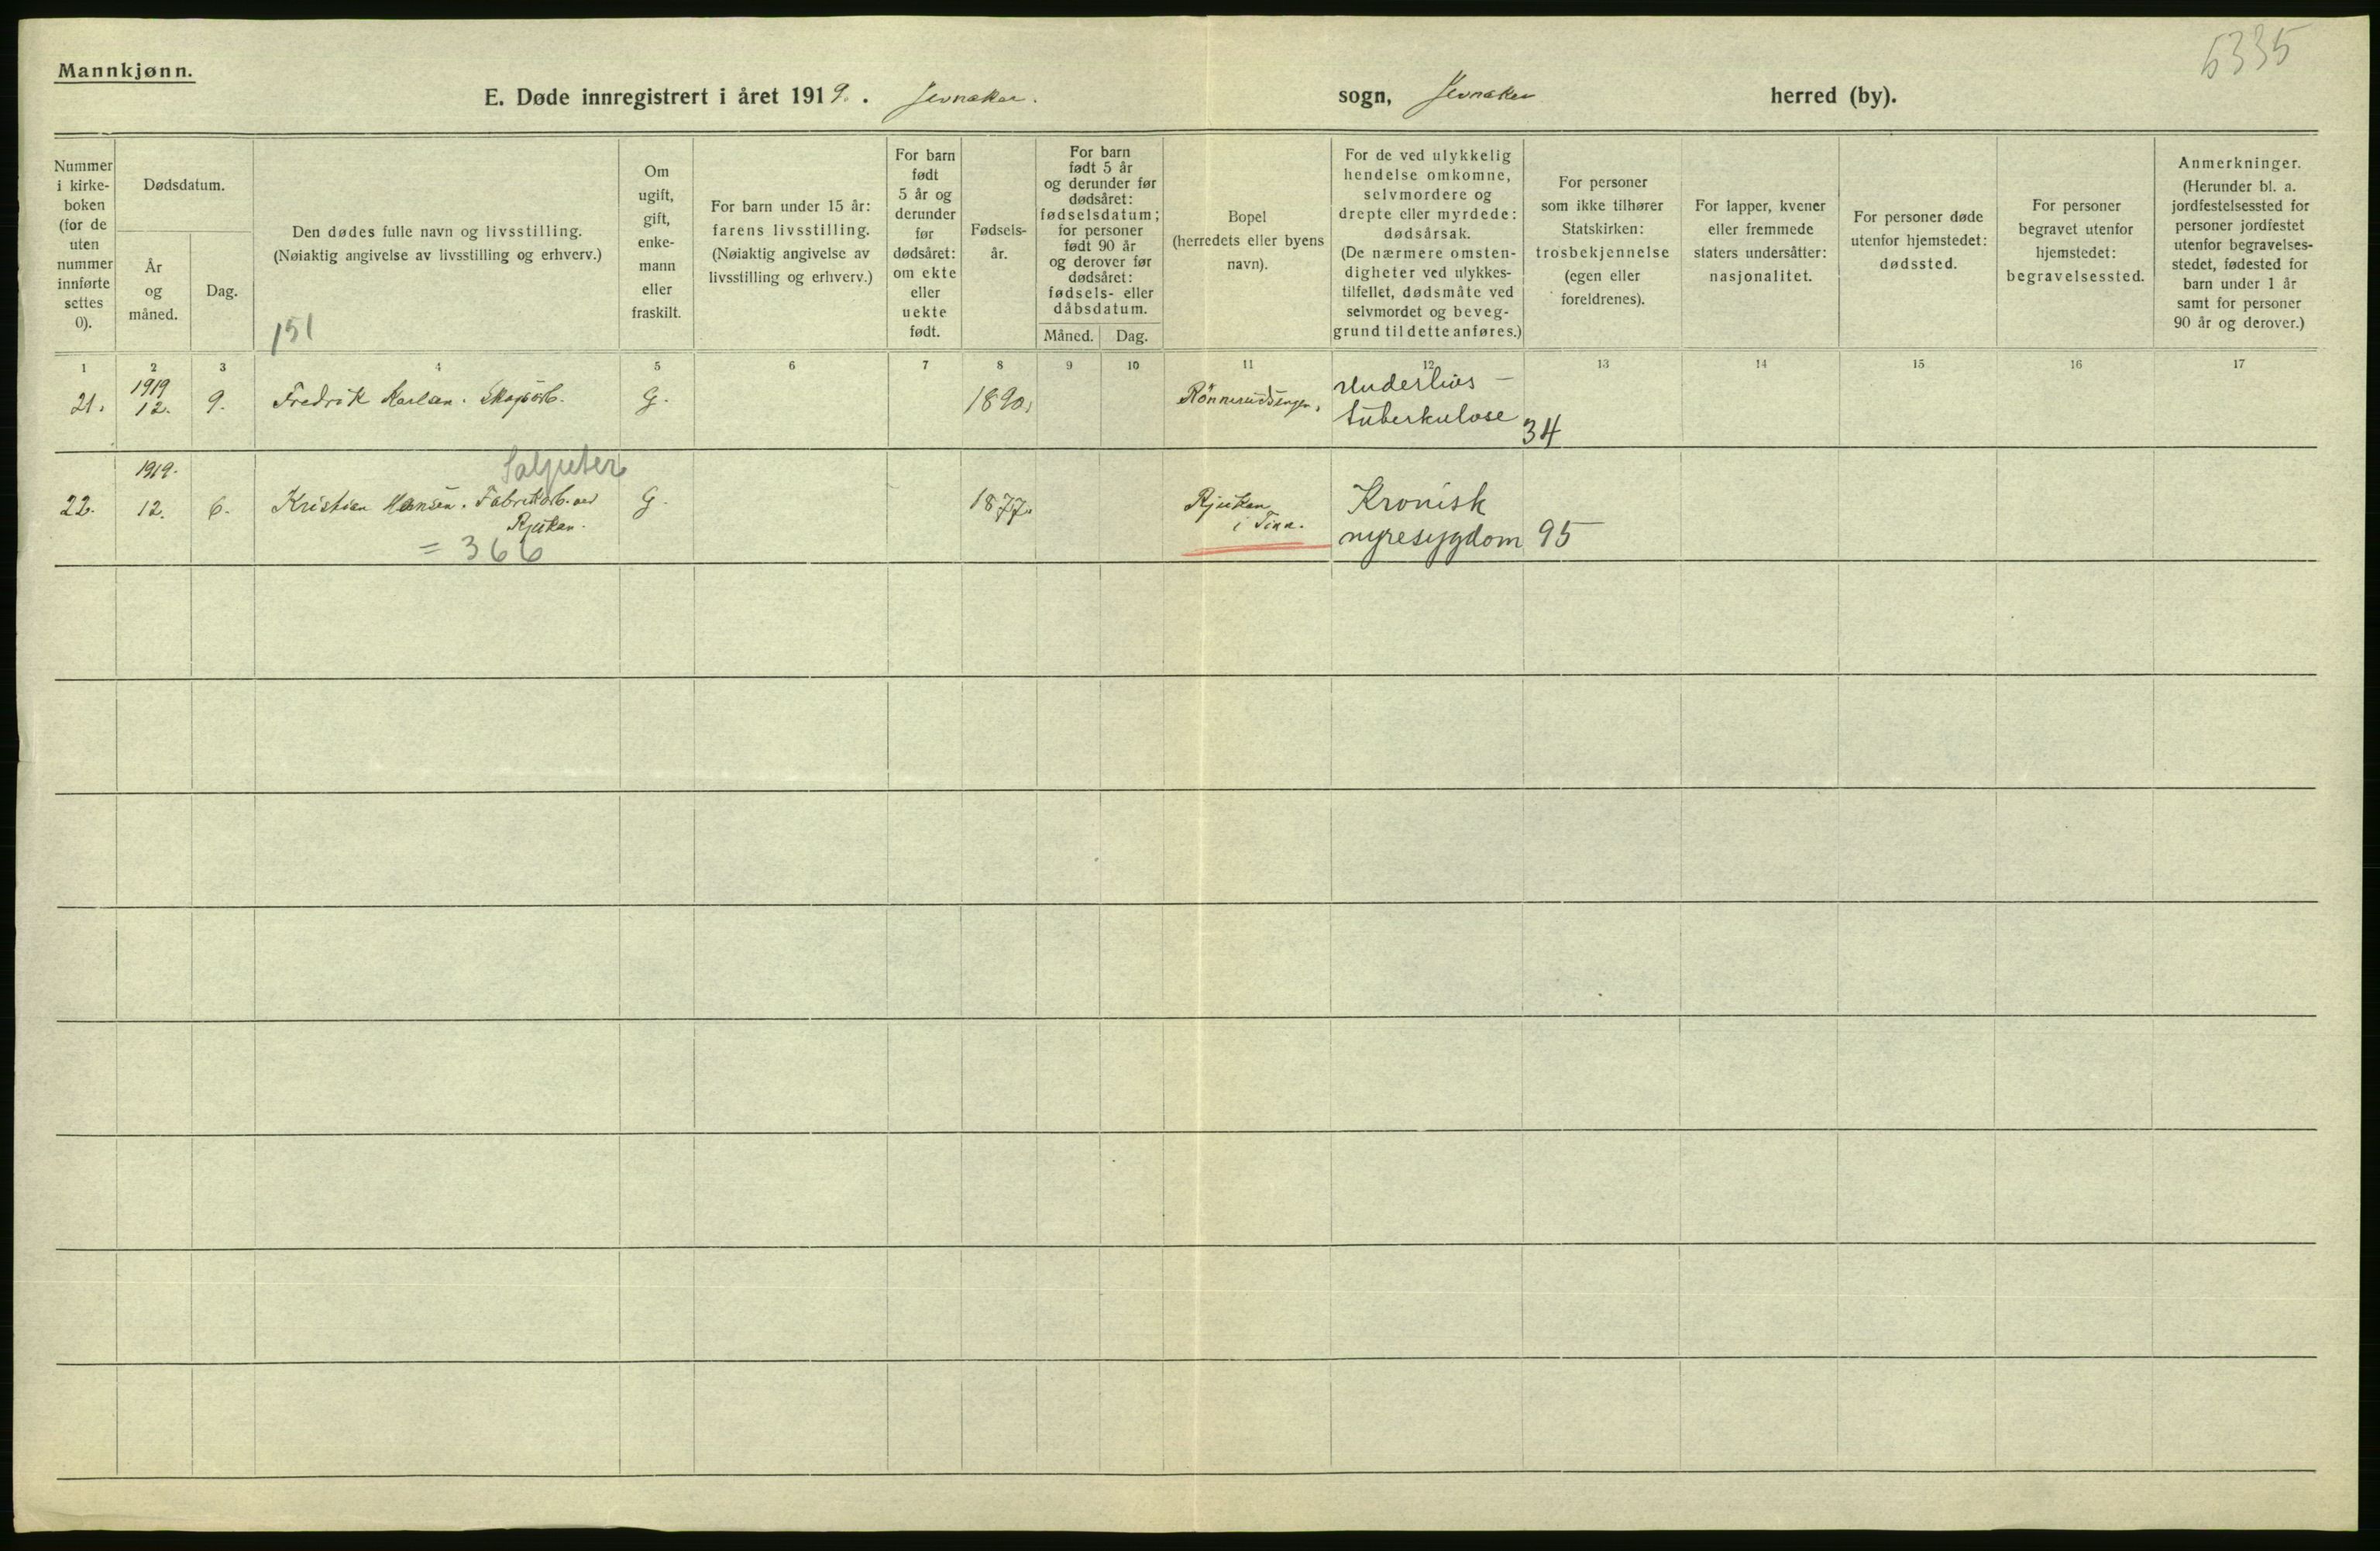 5335
Mannkjønn.
E. Døde innregistrert i året 1919. Jevnaker. sogn, Jevnaker herred (by).
Nummer
i kirke-
boken
(for de
uten
nummer
innførte
settes
0).
Dødsdatum.
År
og
måned.
Dag.
Den dødes fulle navn og livsstilling.
(Nøiaktig angivelse av livsstilling og erhverv.)
151
Om
ugift,
gift,
enke-
mann
eller
fraskilt.
For barn under 15 år:
farens livsstilling.
(Nøiaktig angivelse av
livsstilling og erhverv.)
For barn
født
5 år og
derunder
før
dødsåret:
om ekte
eller
uekte
født.
Fødsels-
år.
For barn
født 5 år
og derunder før
dødsåret:
fødselsdatum;
for personer
født 90 år
og derover før
dødsåret:
fødsels- eller
dåbsdatum.
Måned. Dag.
Bopel
(herredets eller byens
navn).
For de ved ulykkelig
hendelse omkomne,
selvmordere og
drepte eller myrdede:
dødsårsak.
(De nærmere omsten-
digheter ved ulykkes-
tilfellet, dødsmåte ved
selvmordet og beveg-
grund til dette anføres.)
For personer
som ikke tilhører
Statskirken:
trosbekjennelse
(egen eller
foreldrenes).
For lapper, kvener
eller fremmede
staters undersåtter:
nasjonalitet.
For personer døde
utenfor hjemstedet:
dødssted.
For personer
begravet utenfor
hjemstedet:
begravelsessted.
Anmerkninger.
(Herunder bl. a.
jordfestelsessted for
personer jordfestet
utenfor begravelses-
stedet, fødested for
barn under 1 år
samt for personer
90 år og derover.)
1 2 3 4 5 6 7 8 9 10 11 12 13 14 15 16 17
1919
21. 12. 9. Fredrik Karlsen. Skogsarb. G. 1890. Rönnerudsengen. Underlivs-
tuberkulose 34
Salpeter
1919.
22. 12. 6. Kristian Hansen. Fabrikarb. ved G. 1877. Rjukan Kronisk
Rjukan. i Tinn. nyresygdom 95
= 366